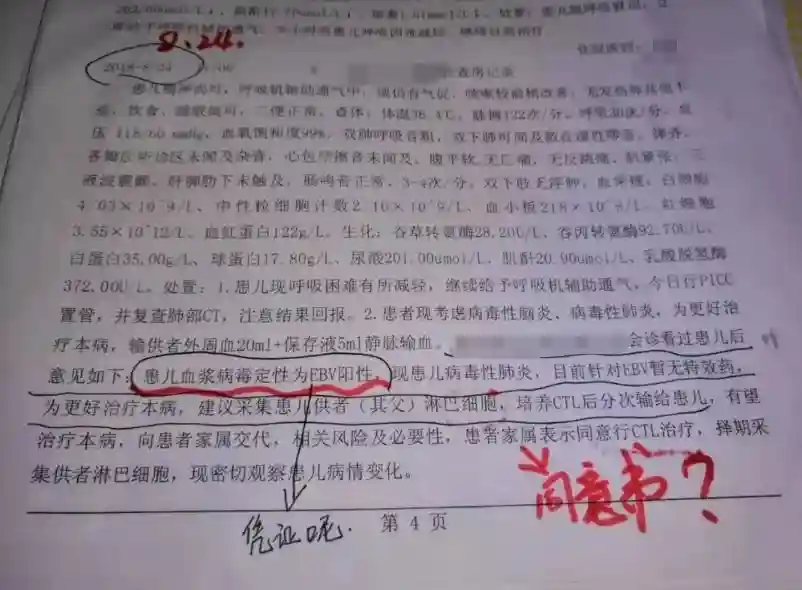 8.24.
2018-8-24
查房记录
患儿精神尚可，呼吸机辅助通气中，
饮食、睡眠尚可，二便正常，查体：体温36.4℃，脉搏122次/分，呼吸30次/分，血
压 118/60 mmHg，血氧饱和度99%，双肺呼吸音粗，双下肺可闻及散在湿性啰音，
各瓣膜听诊区未闻及杂音，心包摩擦音未闻及，腹平软，无压痛，无反跳痛、肌紧张，
肝脾肋下未触及，肠鸣音正常，3-4次/分，双下肢无浮肿，血常规：白细胞
4.03×10^9/L、中性粒细胞计数2.10×10^9/L、血小板218×10^9/L、红细胞
3.55×10^12/L、血红蛋白122g/L。生化：谷草转氨酶28.20U/L、谷丙转氨酶92.70U/L、
白蛋白35.00g/L、球蛋白17.80g/L、尿酸201.00umol/L、肌酐20.00umol/L、乳酸脱氢酶
372.00U/L。处置：1.患儿现呼吸困难有所减轻，继续给予呼吸机辅助通气，今日行PICC
置管，并复查肺部CT，注意结果回报。2.患者现考虑病毒性脑炎、病毒性肺炎，为更好治
疗本病，输供者外周血20ml+保存液5ml静脉输血。 会诊看过患儿后
意见如下：患儿血浆病毒定性为EBV阳性，现患儿病毒性肺炎，目前针对EBV暂无特效药，
为更好治疗本病，建议采集患儿供者（其父）淋巴细胞，培养CTL后分次输给患儿，有望
治疗本病，向患者家属交代，相关风险及必要性，患者家属表示同意行CTL治疗，择期采
集供者淋巴细胞，现密切观察患儿病情变化。
同意书？
凭证呢.
第 4 页